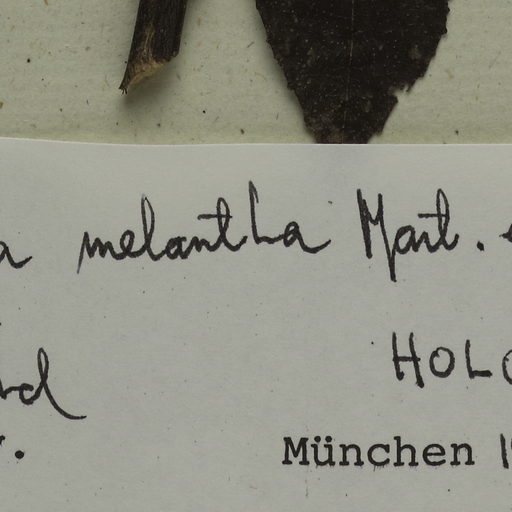 a melantha Mart.
HOLO
München 19